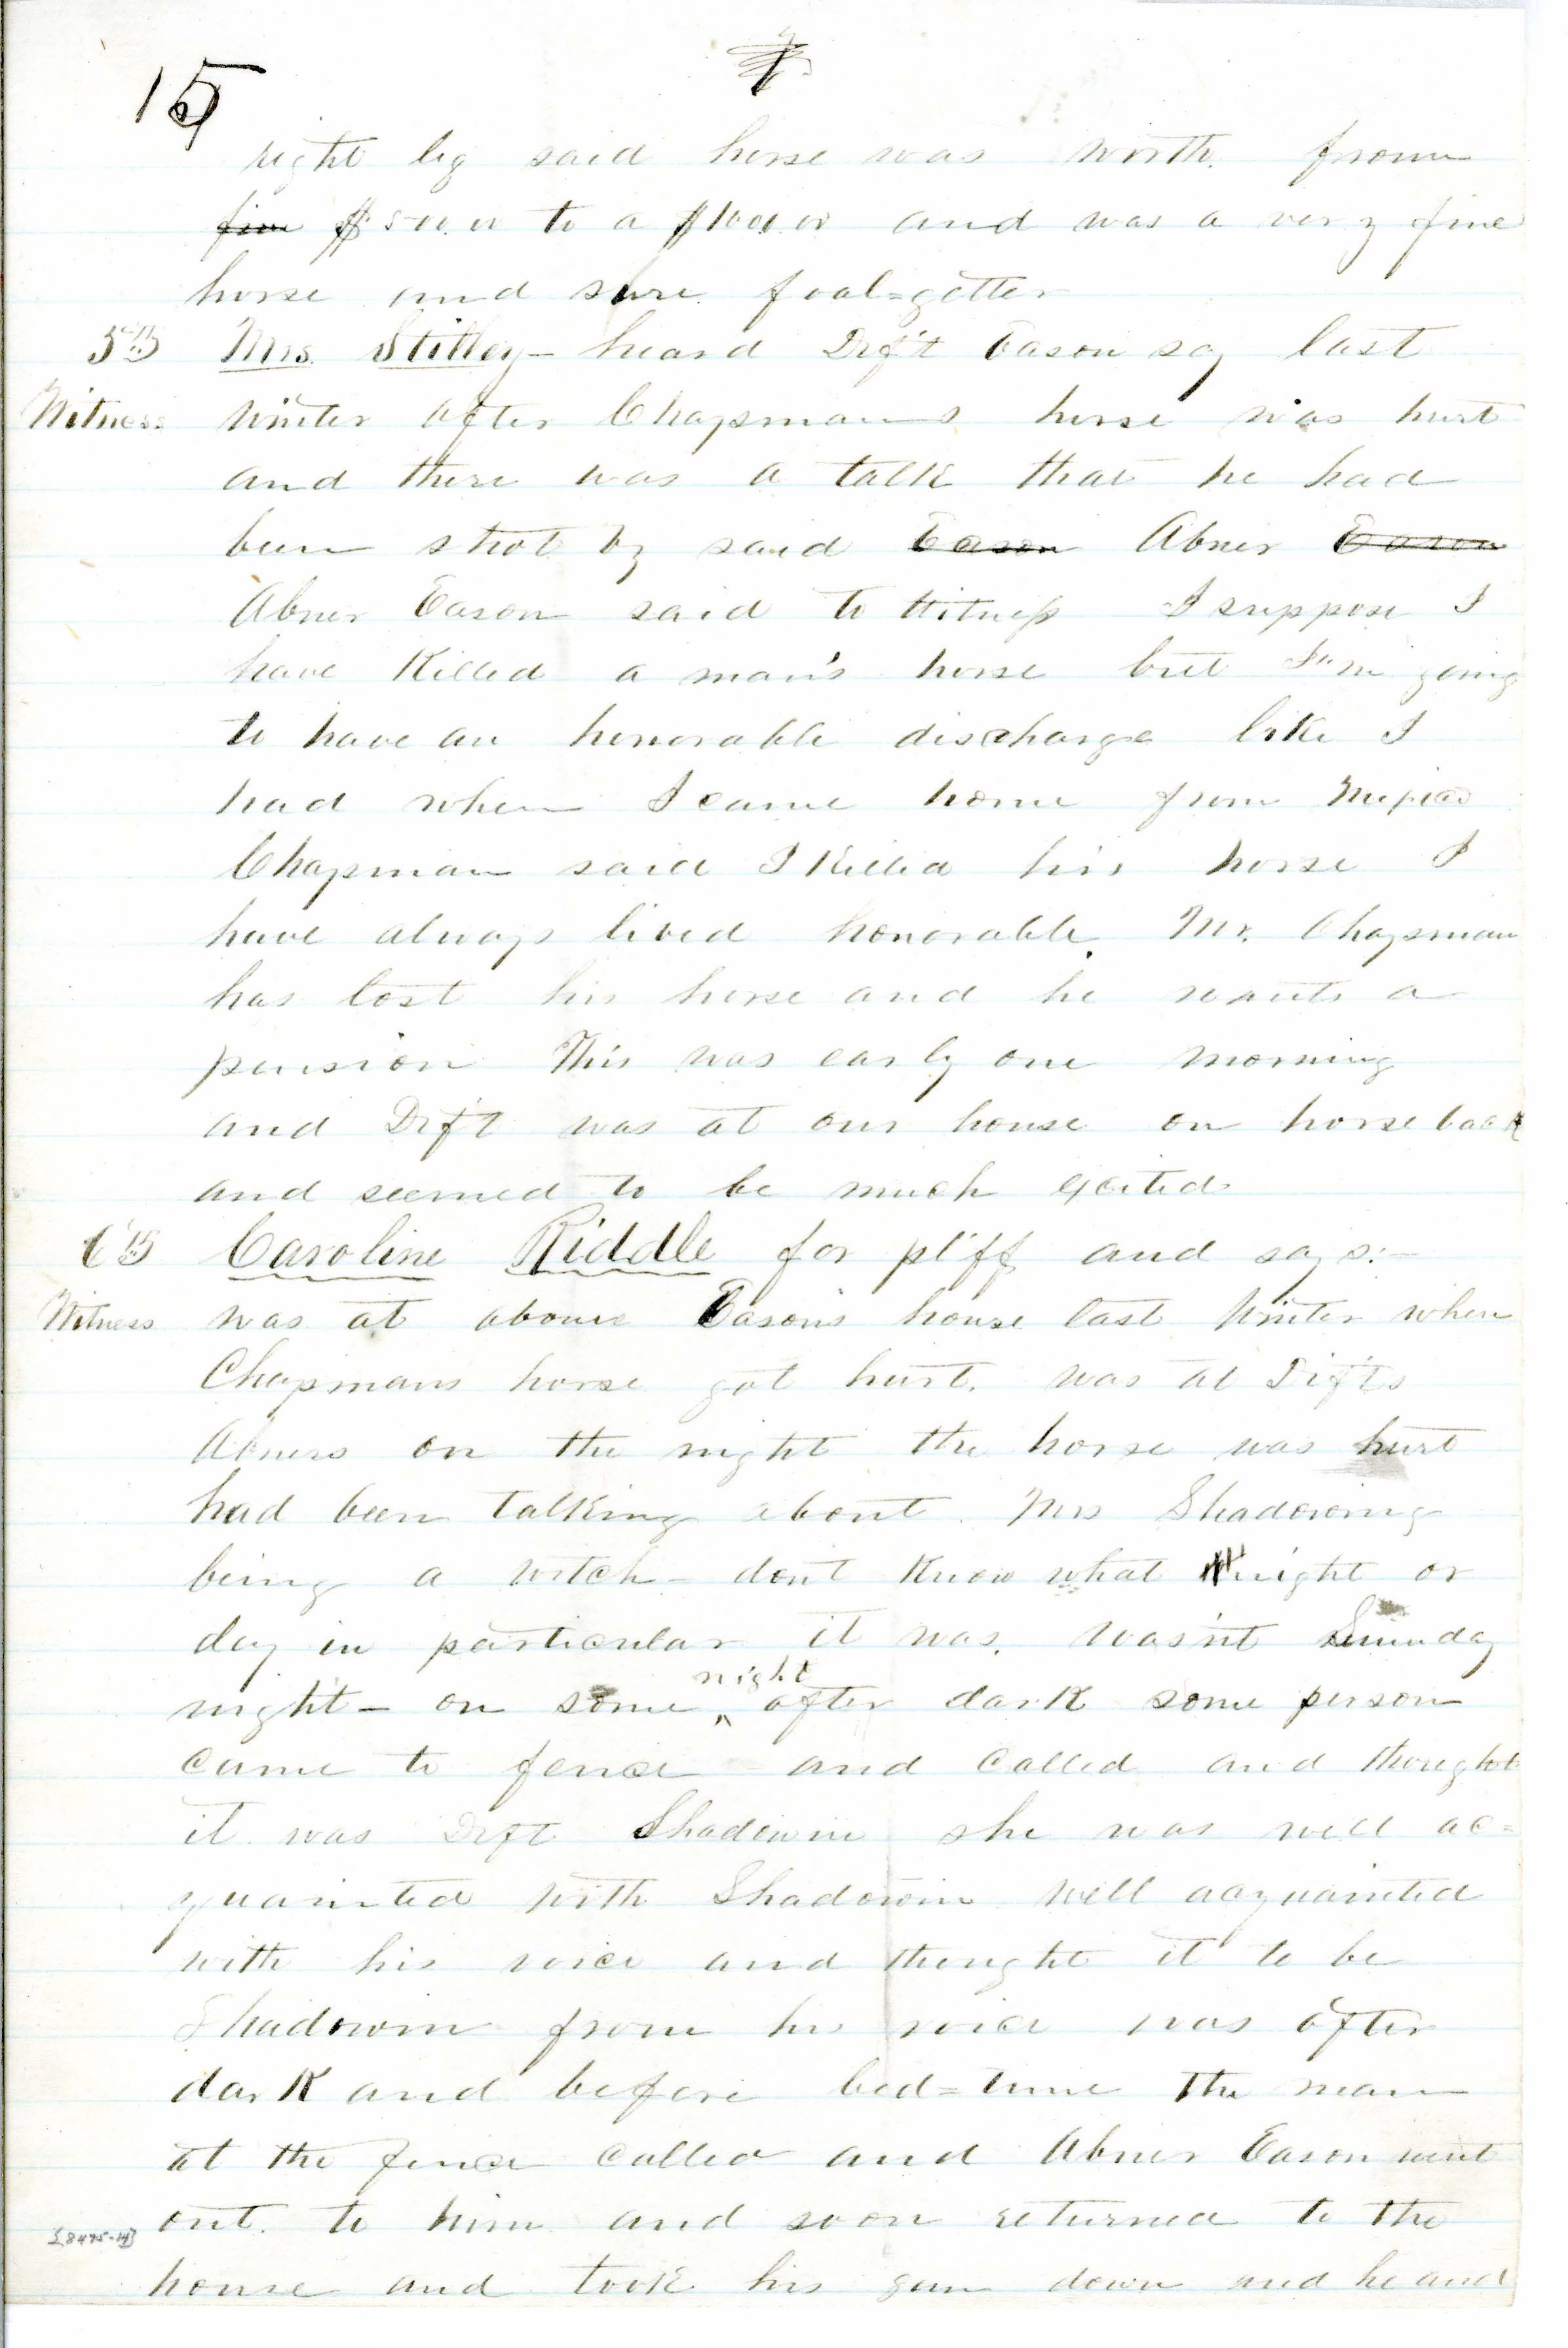 15
right leg said horse was worth from
five $500.00 to a $1000.00 and was a very fine
horse and sure foal=getter
5th Mrs. Stilley - heard Deft Eason say last
Witness winter after Chapmans horse was hurt
and there was a talk that he had
been shot by said Eason Abner Eason
Abner Eason said to Witness I suppose I
have Killed a man's horse but I'm going
to have an honorable discharge like I
had when I came home from Mexico
Chapman said I Killed his horse I
have always lived honorable. Mr. Chapman
has lost his horse and he wants a
pension This was early one morning
and Deft was at our house on horseback
and seemed to be much excited
6th Caroline Riddle for plff and says:-
Witness was at above Eason's house last winter when
Chapmans horse got hurt. was at Defts
Abners on the night the horse was hurt
had been talking about Mrs Shadowing
being a witch - dont Know what night or
day in particular it was. wasn't Sunday
night - on some night after dark some person
came to fence and called and thought
it was Deft Shadowin she was well ac=
quainted with Shadowin well acquainted
with his voice and thought it to be
Shadowin from his voice was after
dark and before bed=time The man
at the fence called and Abner Eason went
out. to him and soon returned to the
[8495-14]
house and took his gun down and he and